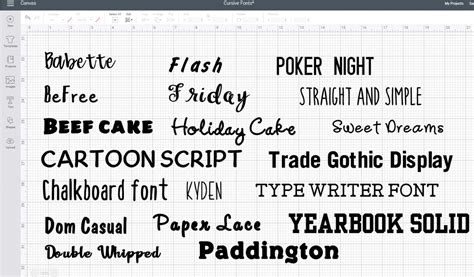 Canvas
Cursive Fonts*
My Projects
New
Templates
Projects
Shapes
Upload
Babette
Flash
POKER NIGHT
BeFree
Friday
STRAIGHT AND SIMPLE
BEEF CAKE
Holiday Cake
Sweet Dreams
CARTOON SCRIPT
Trade Gothic Display
Chalkboard font
KYDEN
TYPE WRITER FONT
Dom Casual
Paper Lace
YEARBOOK SOLID
Double Whipped
Paddington